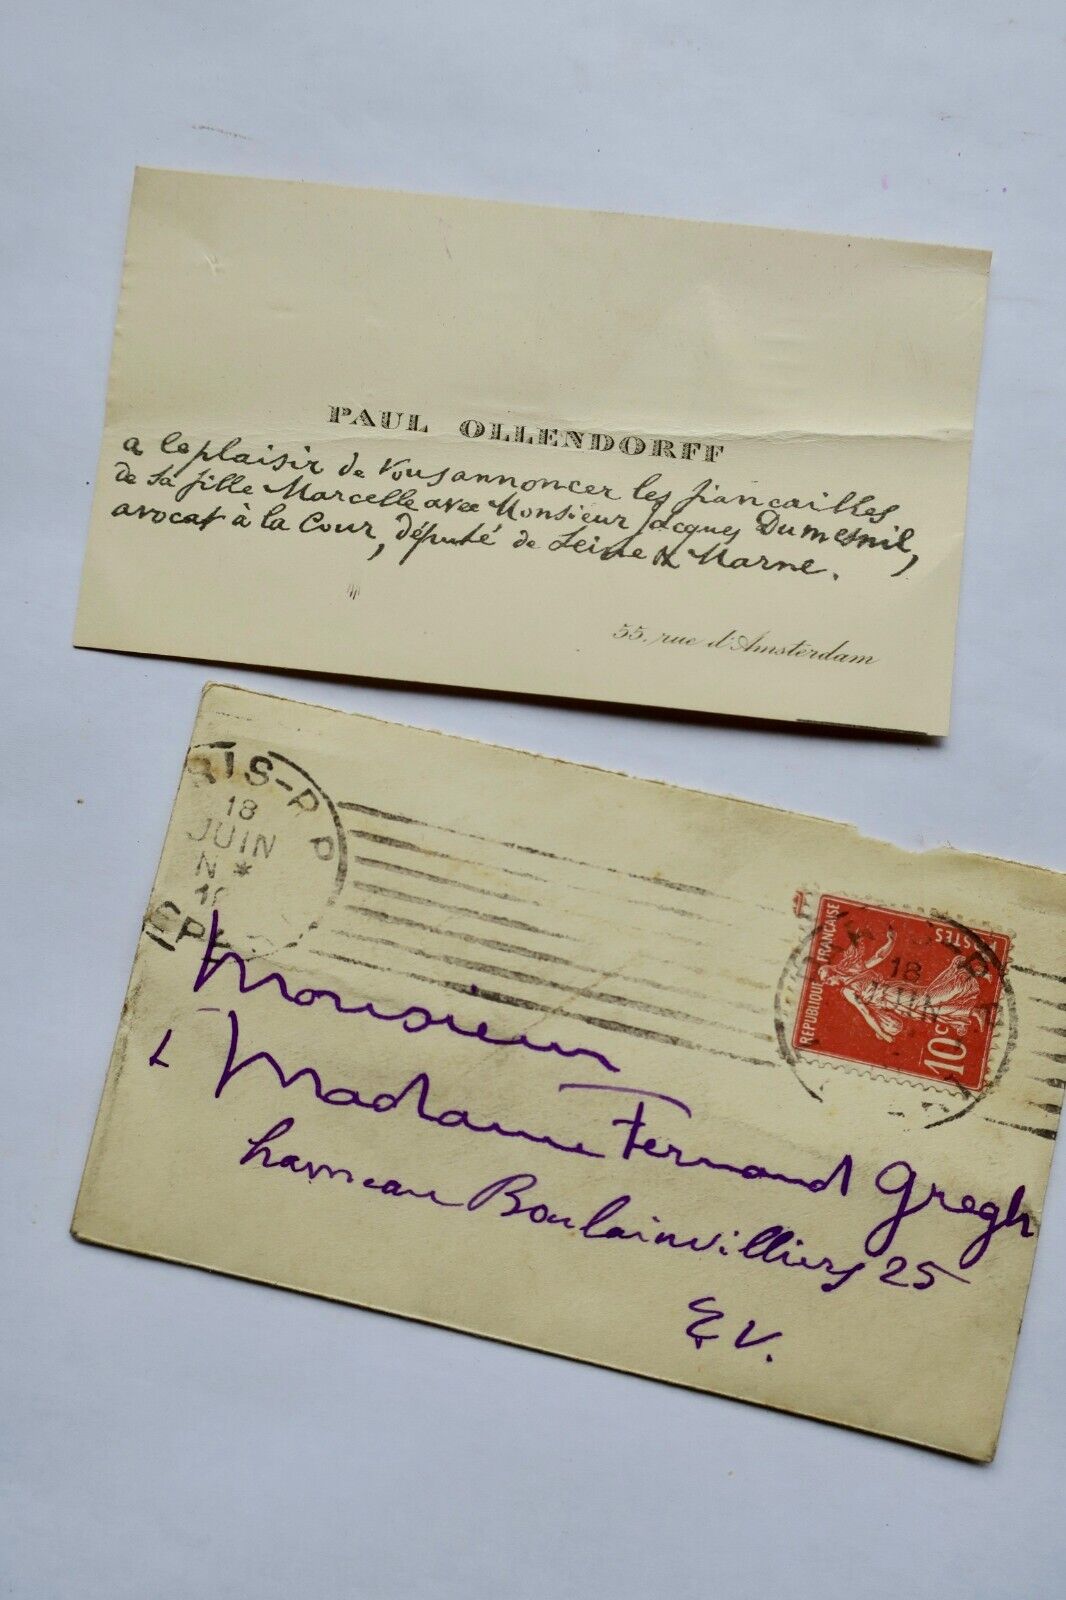 PAUL OLLENDORFF
a le plaisir de vous annoncer les fiançailles
de sa fille Marcelle avec Monsieur Jacques Dumesnil,
avocat à la Cour, député de Seine & Marne.
55, rue d'Amsterdam
RIS-R.P
18
JUIN
N*
18
JUIN
REPUBLIQUE FRANÇAISE
POSTES
10c
Monsieur
& Madame Fernand Gregh
hameau Boulainvilliers 25
E.V.